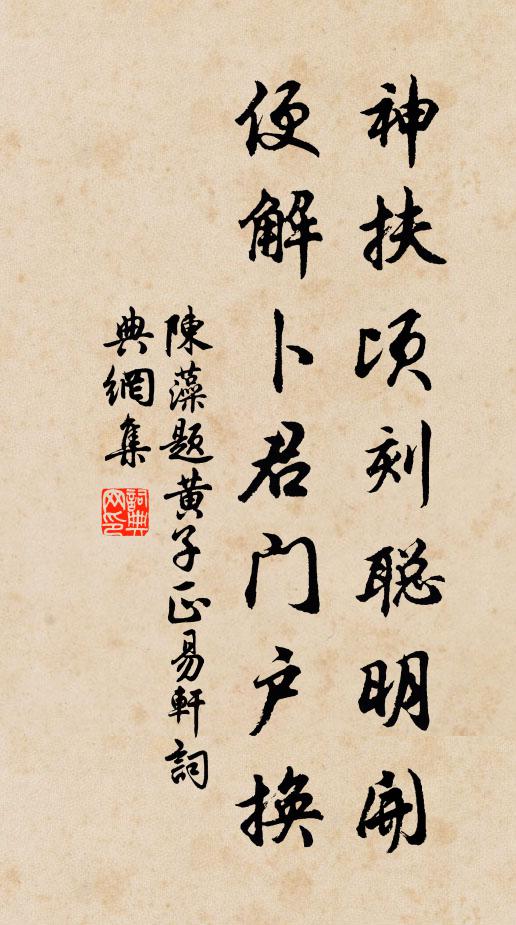 神扶顷刻聪明开
便解卜君门户换
陳藻题黄子正易軒詞
典網集
詞典網印